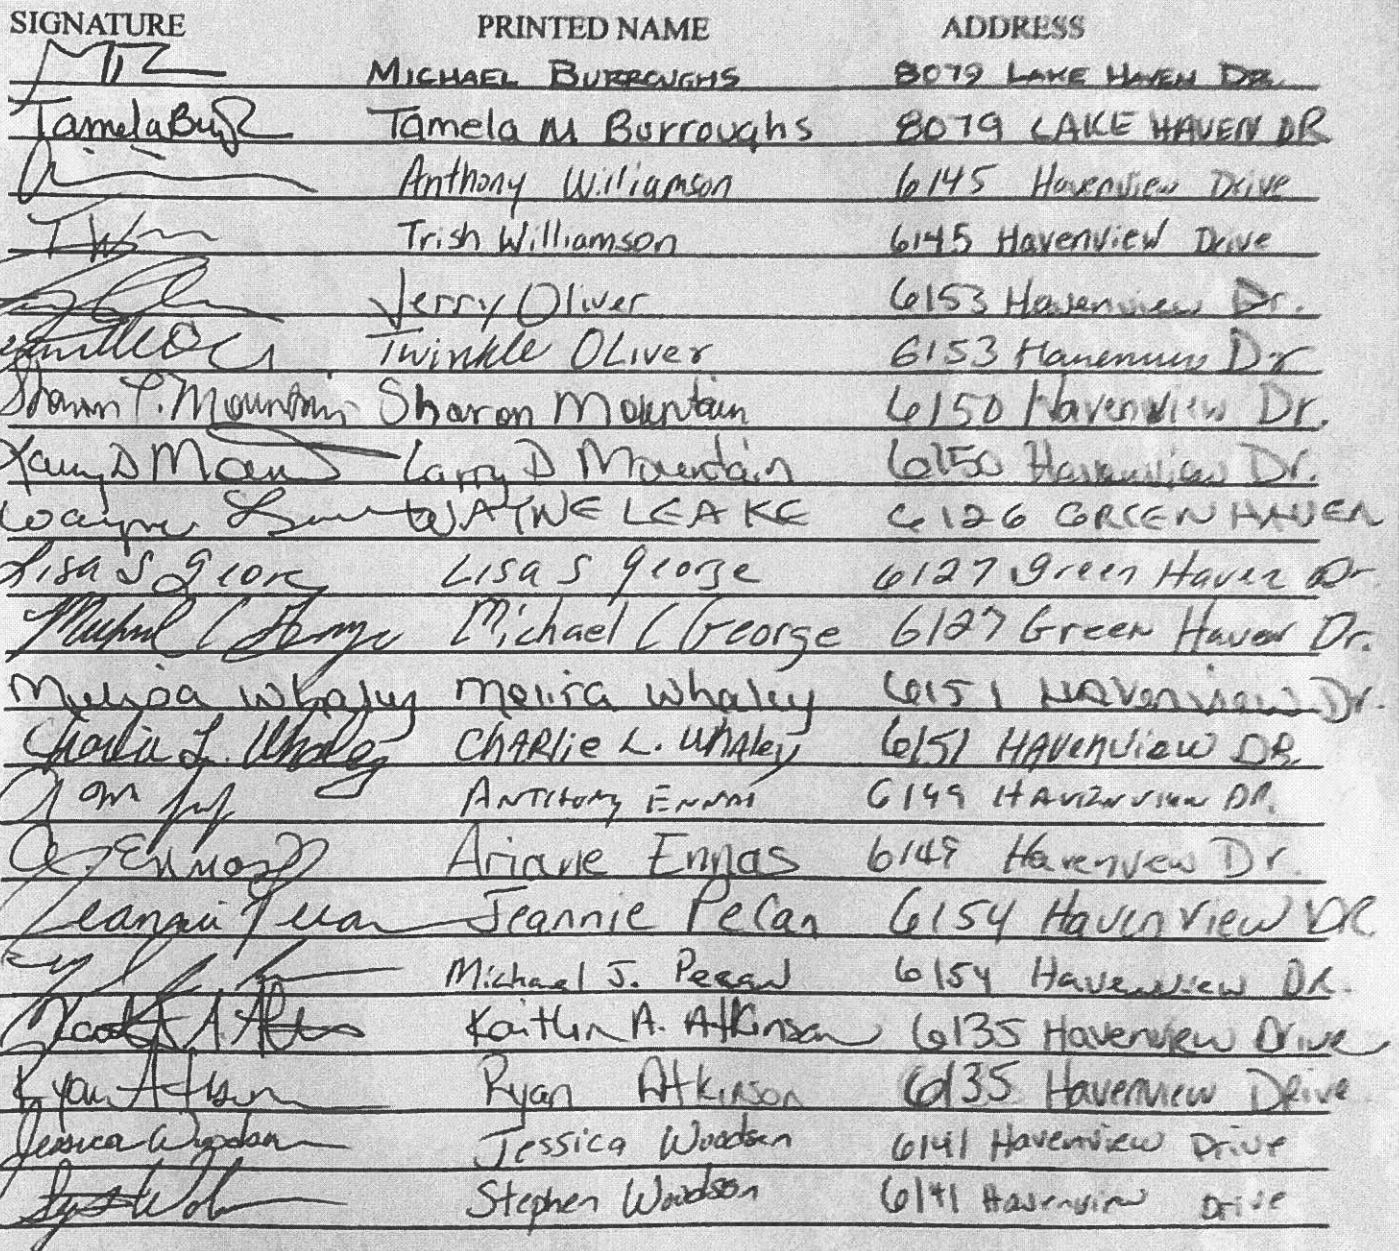 SIGNATURE PRINTED NAME ADDRESS
MICHAEL BURROUGHS 8079 LAKE HAVEN DR.
Tamela Tamela M Burroughs 8079 LAKE HAVEN DR
Anthony Williamson 6145 Havenview Drive
Trish Williamson 6145 Havenview Drive
Jerry Oliver 6153 Havenview Dr.
Twinkle OLiver 6153 Havenview Dr
Sharon P. Mountain Sharon Mountain 6150 Havenview Dr.
Larry D Larry D Mountain 6150 Havenview Dr.
Wayne WAYNE LEAKE 6126 GREEN HAVEN
Lisa S George Lisa S George 6127 Green Haven Dr
Michael C George Michael C George 6127 Green Haven Dr.
Melissa Whaley Whaley 6151 Havenview Dr.
Charlie L. Whaley CHARLie L. WHALey 6151 HAVENView DR.
ANTHONY 6149 HAVENVIEW DR.
Ennas Ariane Ennas 6149 Havenview Dr.
Jeannie Jeannie Pecan 6154 Haven View DR.
Michael J. Pecan 6154 Havenview DR.
Kaitlin A. Atkinson 6135 Havenview Drive
Ryan Ryan Atkinson 6135 Havenview Drive
Jessica Woodson Jessica Woodson 6141 Havenview Drive
Stephen Woodson 6141 Havenview Drive